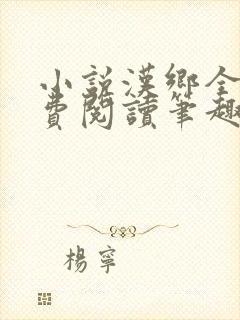 小說漢鄉全
費閱讀筆趣
楊寧